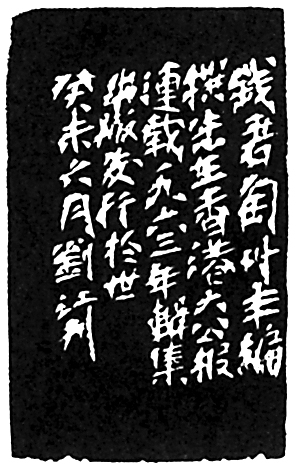 錢君匋叶丰編
撰先在香港大公报
連載一九六三年輯集
出版發行於世
癸未六月劉江刻